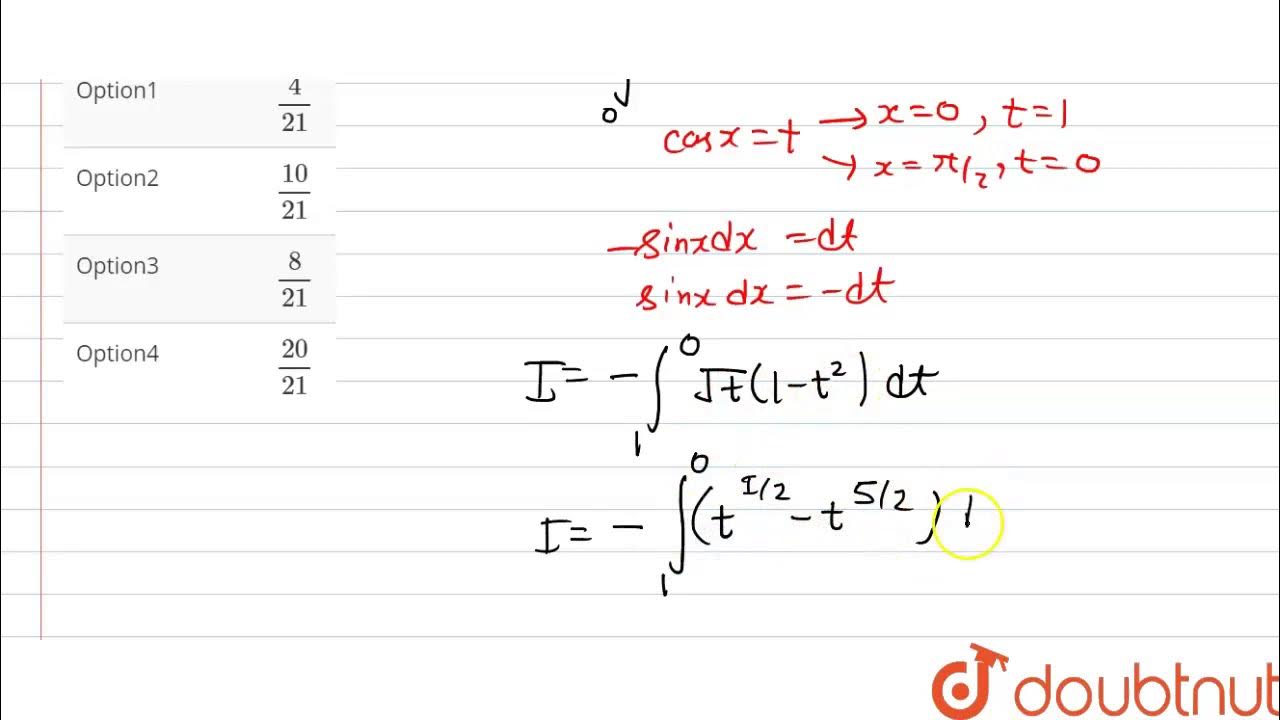 Option1 4/21
Option2 10/21
Option3 8/21
Option4 20/21
0
cosx=t → x=0, t=1
→ x=π/2, t=0
-sinxdx =dt
sinx dx=-dt
I= -∫₁⁰ √t(1-t²) dt
I= -∫₁⁰ (t^1/2 - t^5/2)
doubtnut